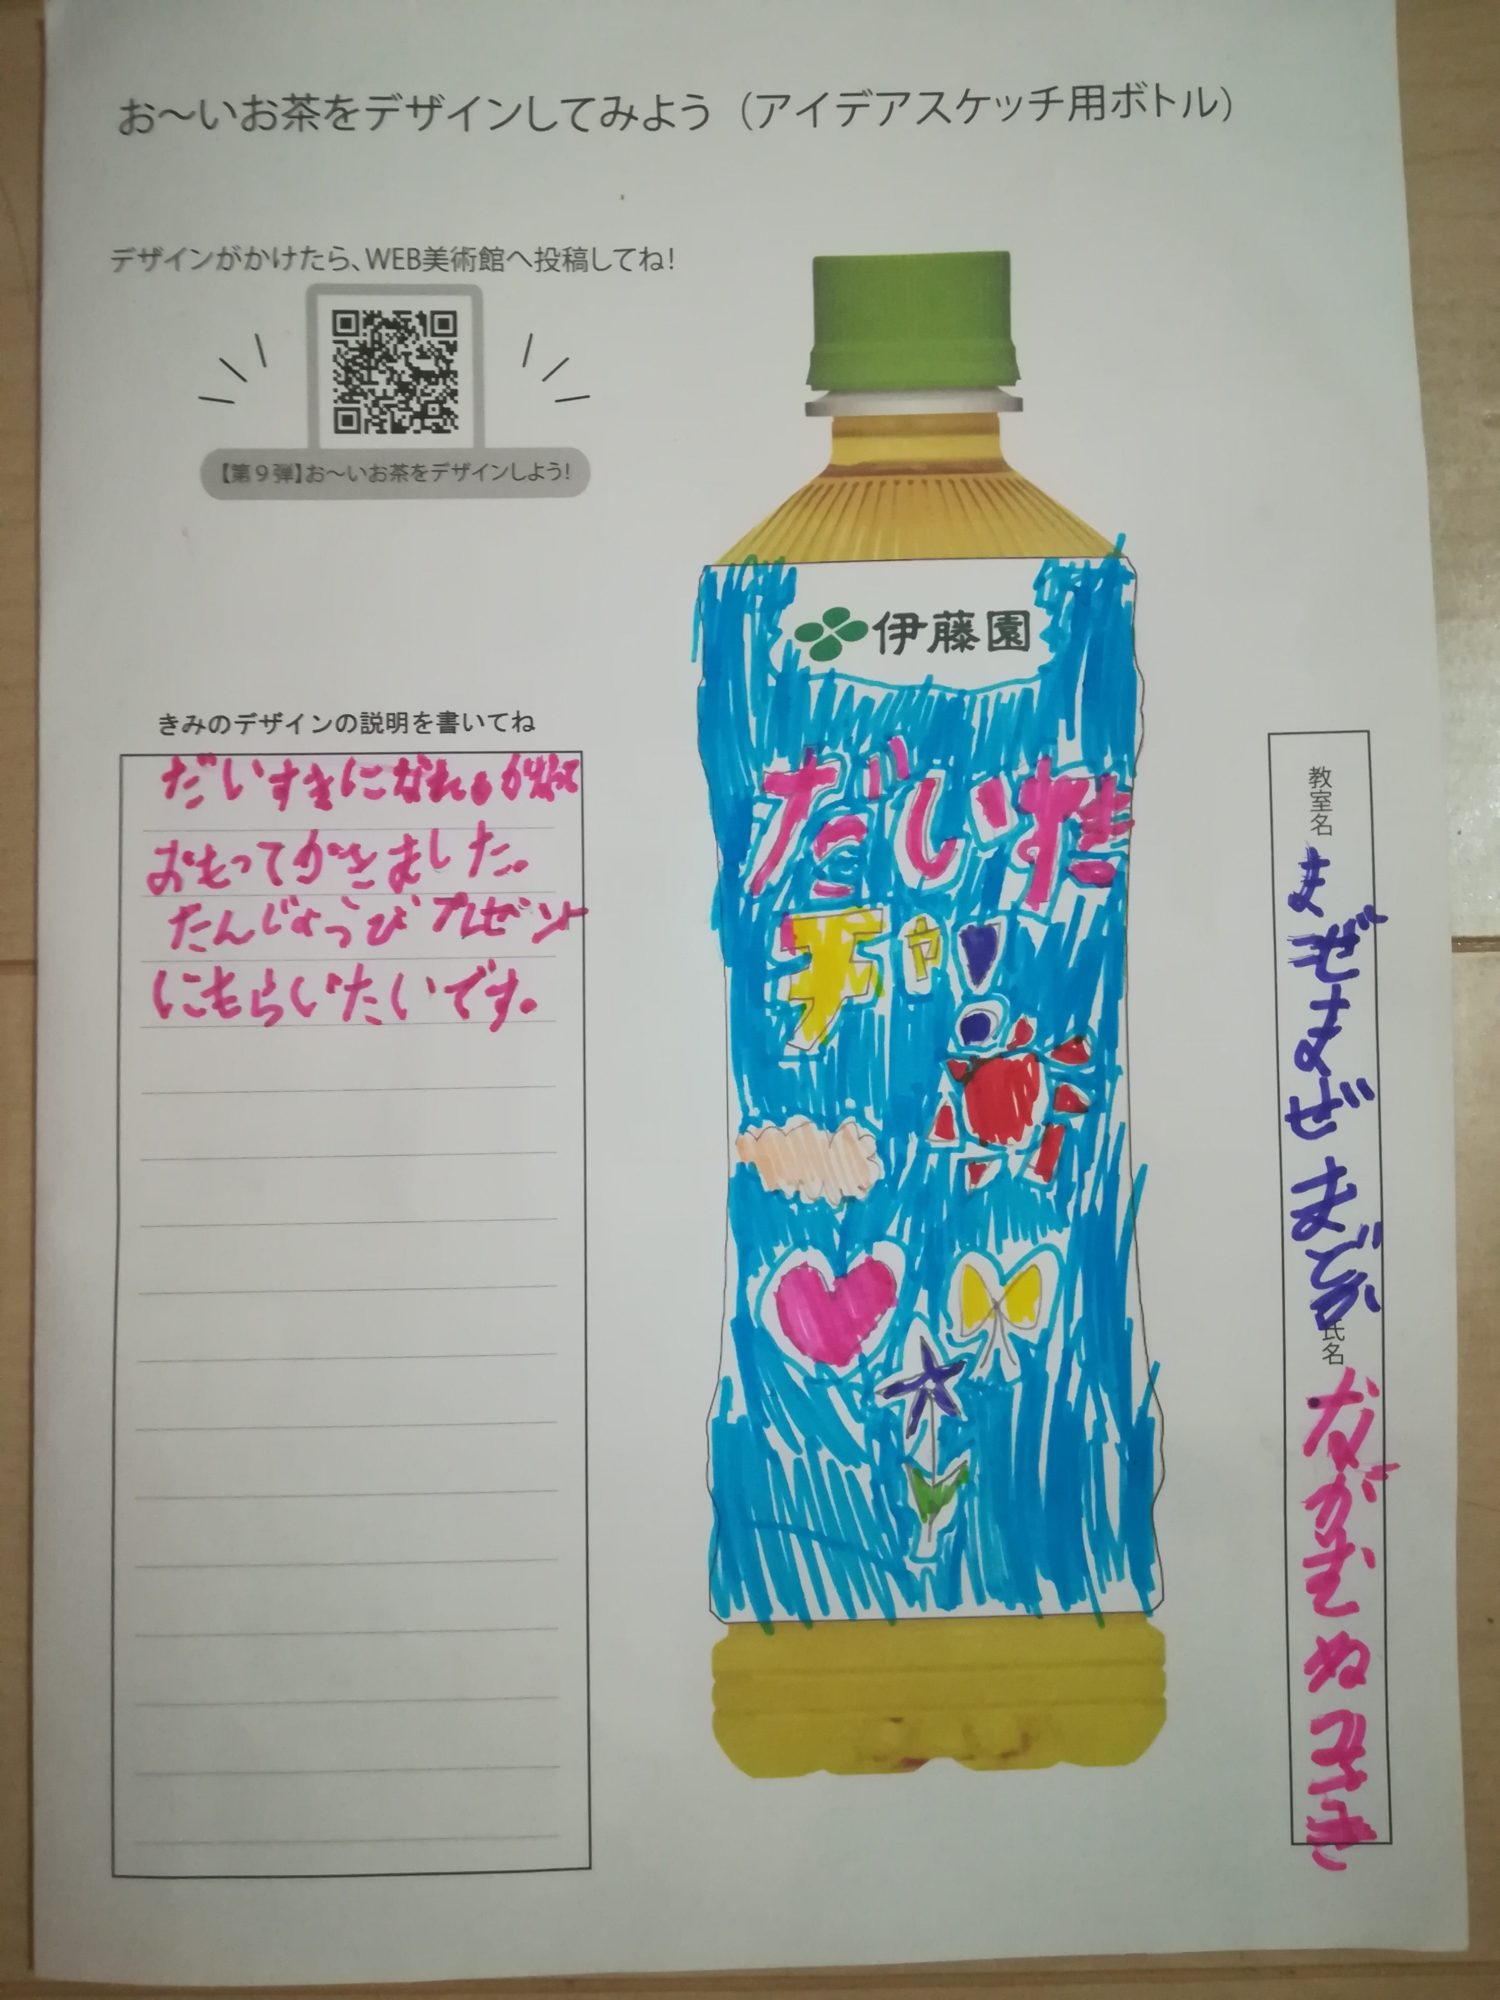 お～いお茶をデザインしてみよう（アイデアスケッチ用ボトル）
デザインがかけたら、WEB美術館へ投稿してね！
【第９弾】お～いお茶をデザインしよう！
伊藤園
だいすき
チャ！
きみのデザインの説明を書いてね
だいすきになれ。
おもってかきました。
たんじょうびプレゼント
にもらいたいです。
教室名
まぜまぜまどか
氏名